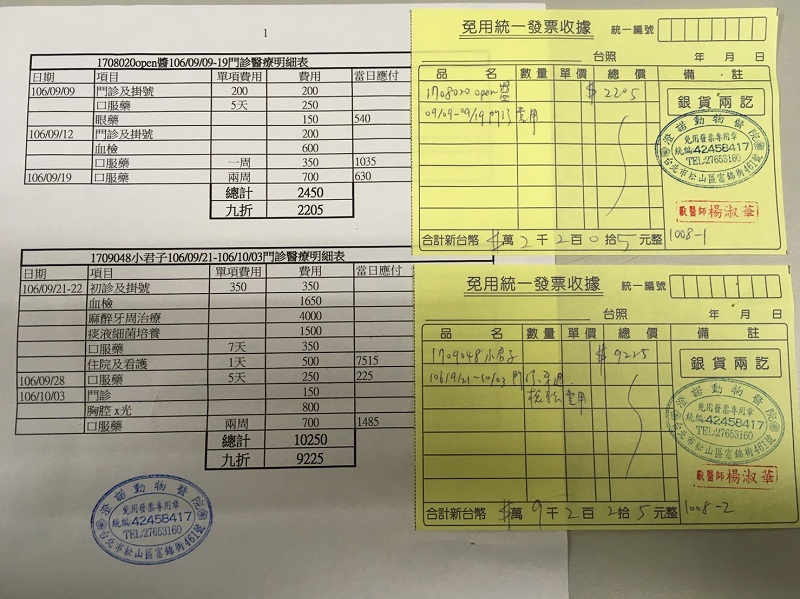 1
1708020open醬106/09/09-19門診醫療明細表
日期 項目 單項費用 費用 當日應付
106/09/09 門診及掛號 200 200
口服藥 5天 250
眼藥 150 540
106/09/12 門診及掛號 200
血檢 600
口服藥 一周 350 1035
106/09/19 口服藥 兩周 700 630
總計 2450
九折 2205
1709048小君子106/09/21-106/10/03門診醫療明細表
日期 項目 單項費用 費用 當日應付
106/09/21-22 初診及掛號 350 350
血檢 1650
麻醉牙周治療 4000
痰液細菌培養 1500
口服藥 7天 350
住院及看護 1天 500 7515
106/09/28 口服藥 5天 250 225
106/10/03 門診 150
胸腔 x光 800
口服藥 兩周 700 1485
總計 10250
九折 9225
澄諾動物醫院
免用發票專用章
統編:42458417
TEL:27653160
台北市松山區富錦街461號
免用統一發票收據 統一編號
台照 年 月 日
品名 數量 單價 總價 備註
1708020 open醬 $2205
09/09-09/19門診費用
銀貨兩訖
澄諾動物醫院
免用發票專用章
統編:42458417
TEL:27653160
台北市松山區富錦街461號
獸醫師楊淑華
合計新台幣 $萬2千2百0拾5元整 1008-1
免用統一發票收據 統一編號
台照 年 月 日
品名 數量 單價 總價 備註
1709048小君子 $9225
106/9/21~10/03門診
費用
銀貨兩訖
澄諾動物醫院
免用發票專用章
統編:42458417
TEL:27653160
台北市松山區富錦街461號
獸醫師楊淑華
合計新台幣 $萬9千2百2拾5元整 1008-2